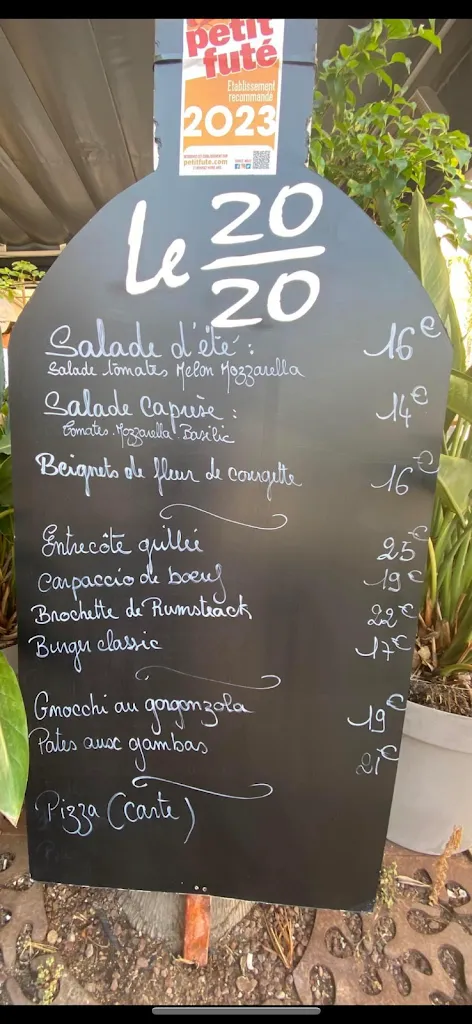 petit
futé
Etablissement
recommandé
2023
petitfute.com
Le 20/20
Salade d'été : 16€
Salade tomates Melon Mozzarella
Salade Caprèse : 14€
tomates. Mozzarella. Basilic
Beignets de fleur de courgette 16€
Entrecôte grillée 25€
Carpaccio de boeuf 19€
Brochette de Rumsteack 22€
Burger classic 17€
Gnocchi au gorgonzola 19€
Pates aux gambas 21€
Pizza (Carte)